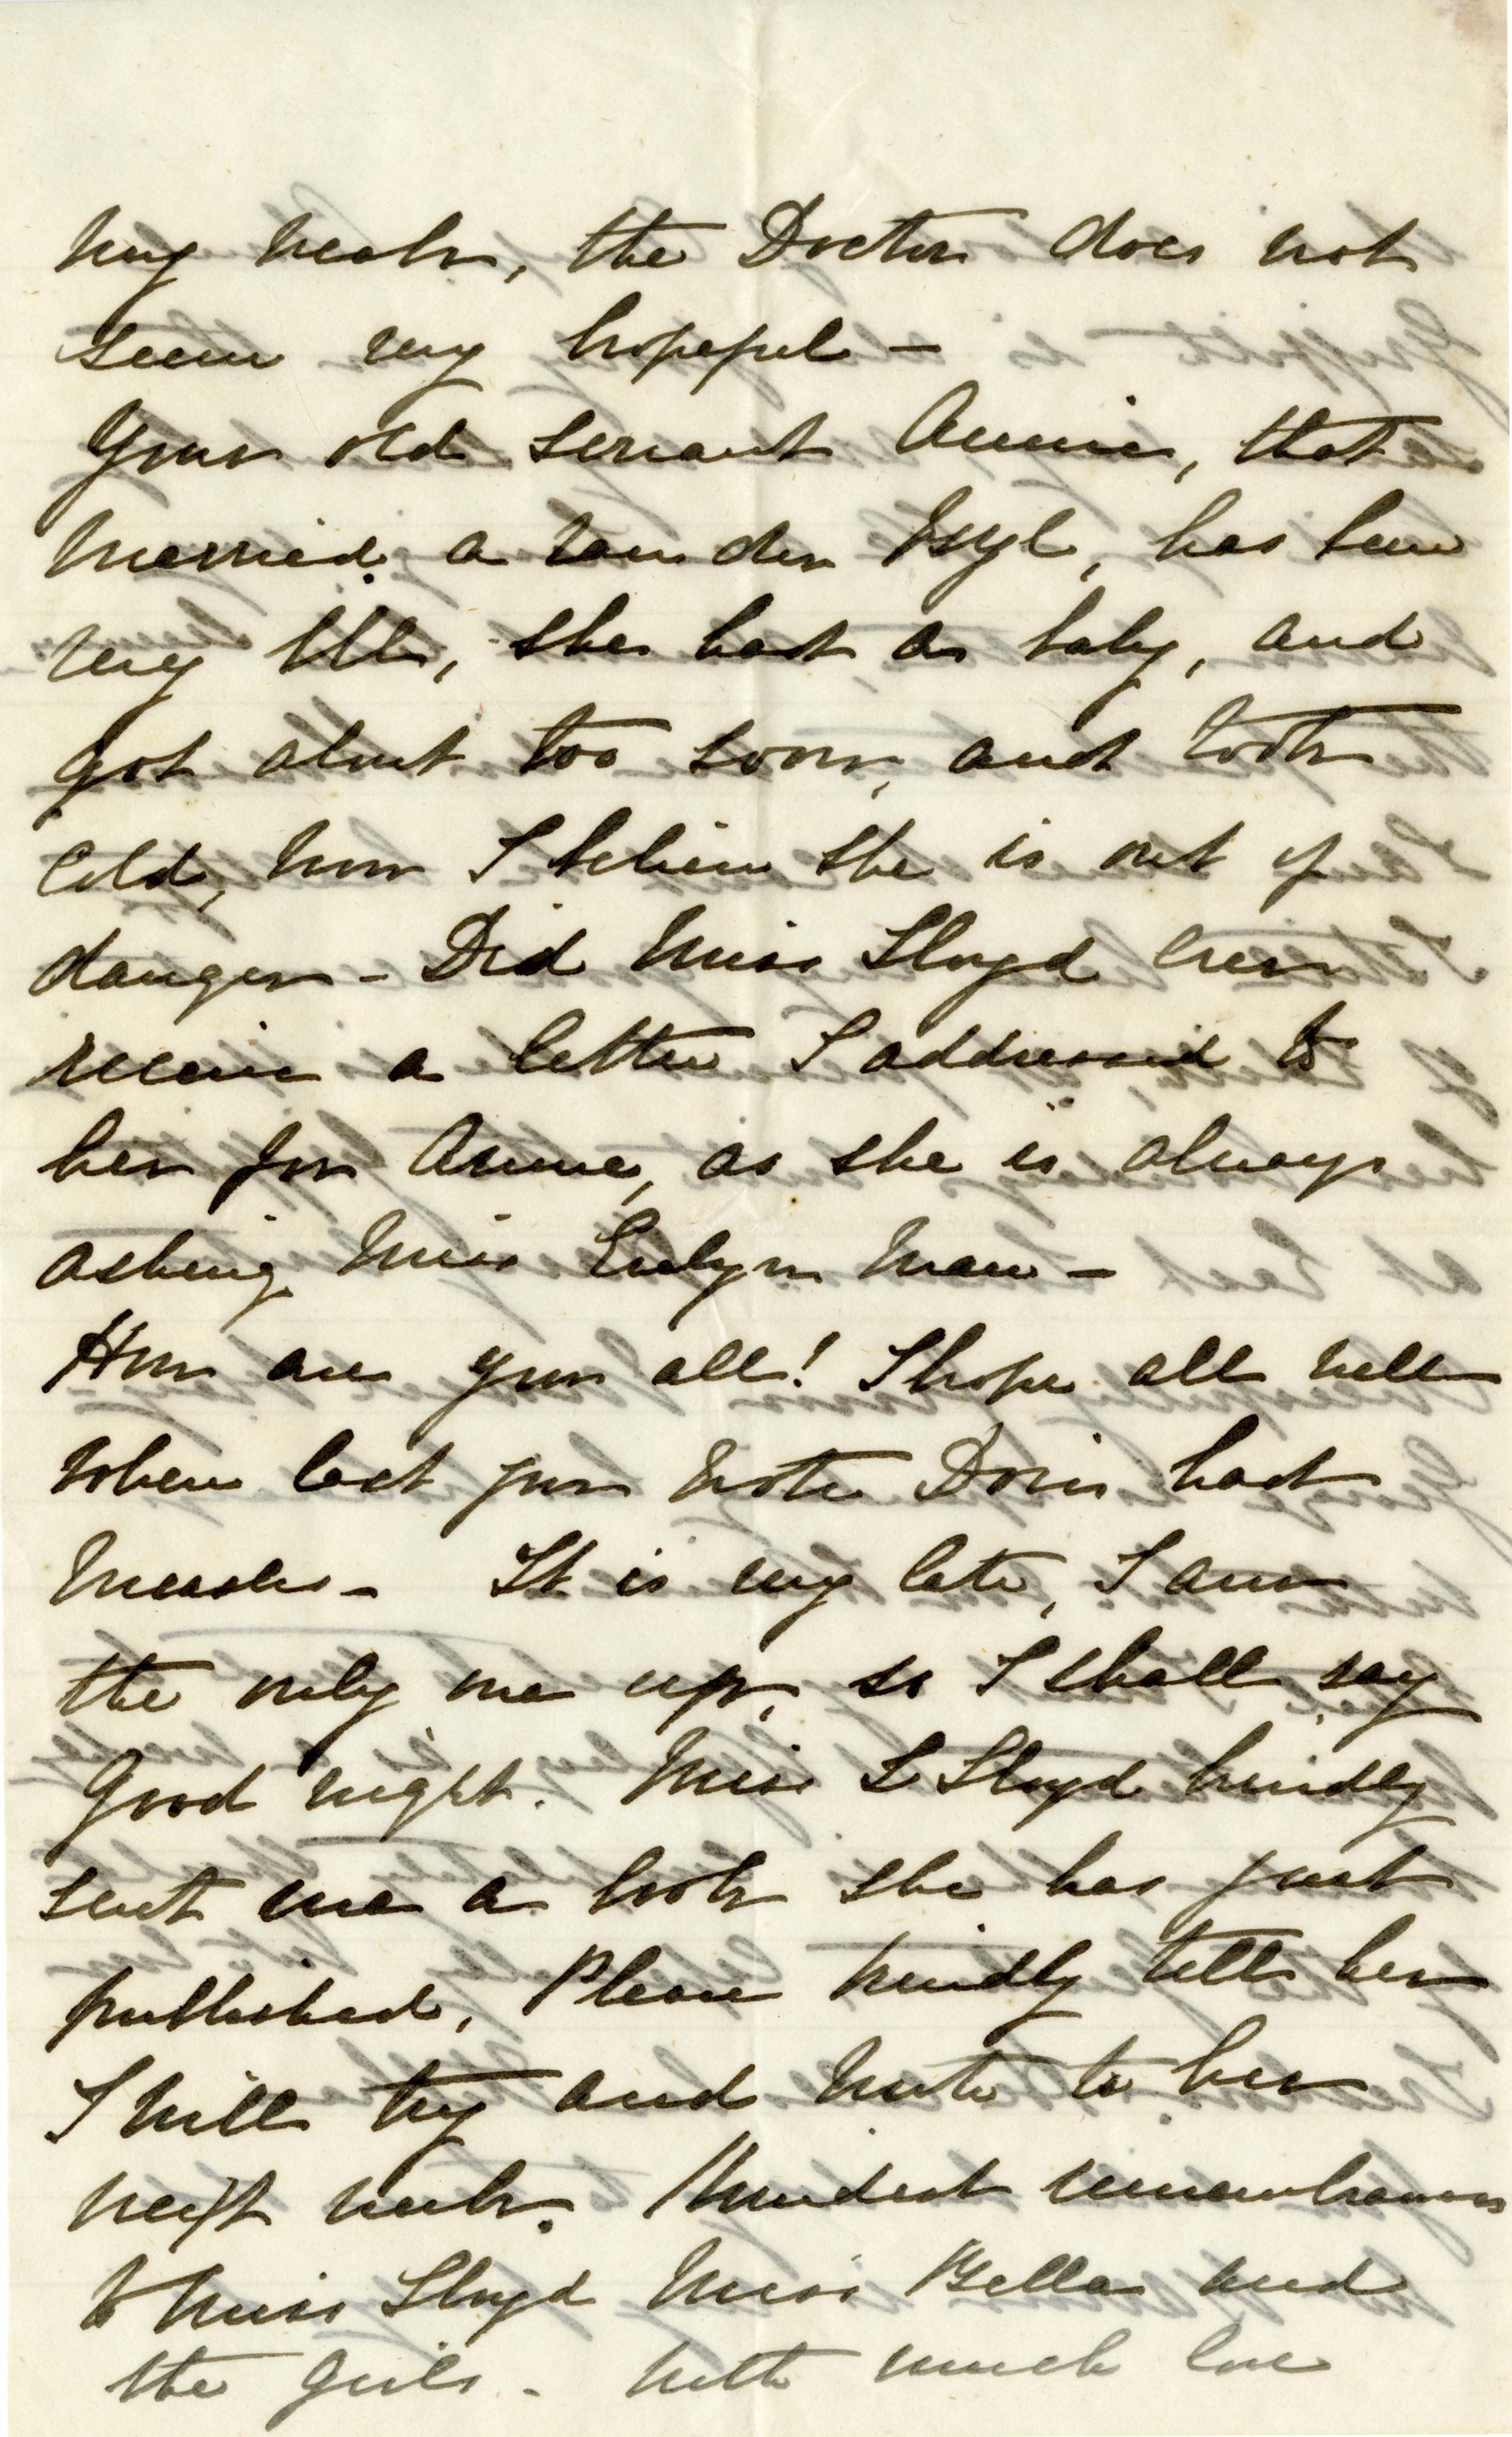 very weak, the Doctor does not
seem very hopeful -
Your old servant Annie, that
married a van der Byl, has been
very ill, she had a baby, and
got about too soon, and took
cold, now I believe she is out of
danger - Did Miss Lloyd ever
receive a letter I addressed to
her for Annie, as she is always
asking Miss Evelyn Maw -
How are you all! I hope all well
when last you wrote Doris had
measles - It is very late, I am
the only one up, so I shall say
Good night. Miss L Lloyd kindly
sent me a book she has just
published, Please kindly tell her
I will try and write to her
next week. Kindest remembrances
to Miss Lloyd Miss Bella and
the Girls - with much love